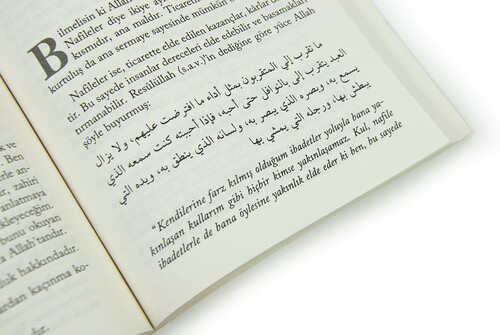 Bilmelisin ki Allah
Nafileler diye ikiye
kısmıdır, ana maldır.
kurtuluş da ana sermaye sayesinde mümkün
Nafileler ise, ticarette elde edilen kazançlar, kârlar
dir. Bu sayede insanlar dereceleri elde edebilir ve basamakları
tırmanabilir. Resûlüllah (s.a.v.)'in dediğine göre yüce Allah
şöyle buyurmuş:
ما تقرب إلي المتقربون بمثل أداء ما افترضت عليهم، ولا يزال
العبد يتقرب إلي بالنوافل حتى أحبه، فإذا أحببته كنت سمعه الذي
يسمع به، وبصره الذي يبصر به، ولسانه الذي ينطق به، ويده التي
يبطش بها، ورجله التي يمشي بها
"Kendilerine farz kılmış olduğum ibadetler yoluyla bana ya-
kınlaşan kullarım gibi hiçbir kimse yakınlaşamaz. Kul, nafile
ibadetlerle de bana öylesine yakınlık elde eder ki ben, bu sayede
Ben
zahiri
anlatmaya
kleyeceğim.
bunu okuyan
a Allah'tandır.
luk hakkındadır.
rdan kaçınma ko-
dır.